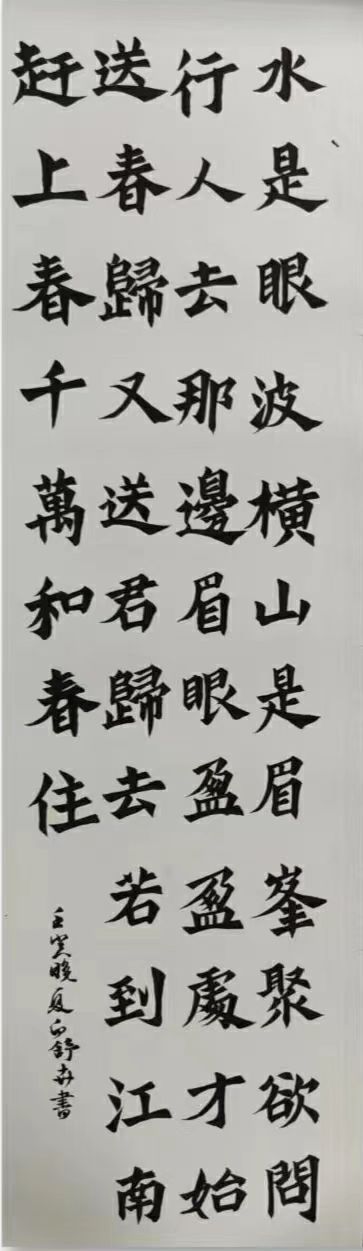 水是眼波橫山是眉峯聚欲問
行人去那邊眉眼盈盈處才始
送春歸又送君歸去若到江南
赶上春千萬和春住
壬寅晚夏舒卉書